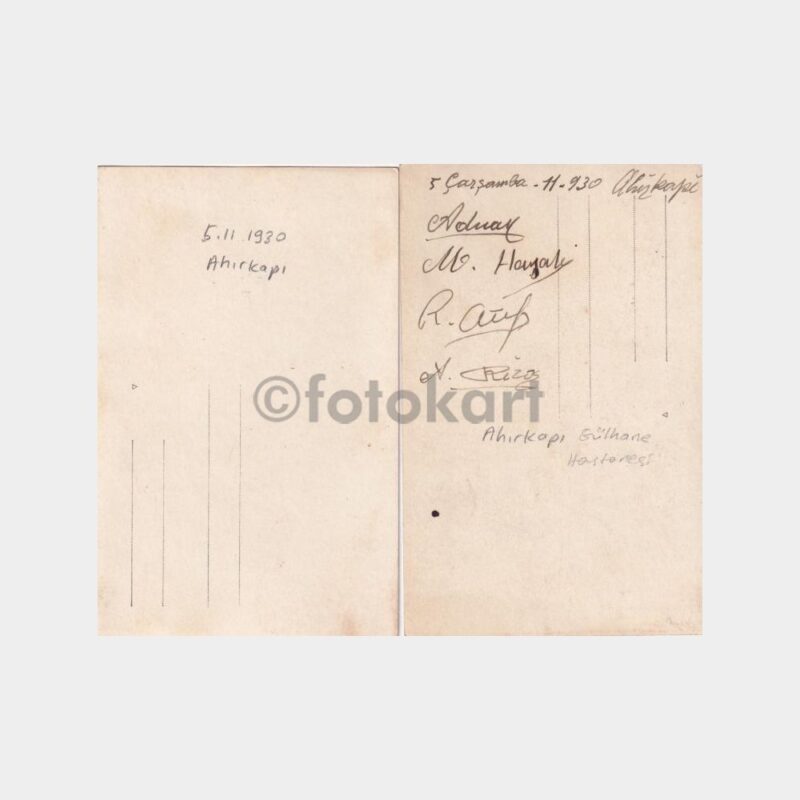 5.11.1930
Ahırkapı
5 Çarşamba - 11 - 930 Ahırkapı
Adnan
M. Hayati
R. Atıf
A. Rıza
©fotokart
Ahırkapı Gülhane
Hastanesi